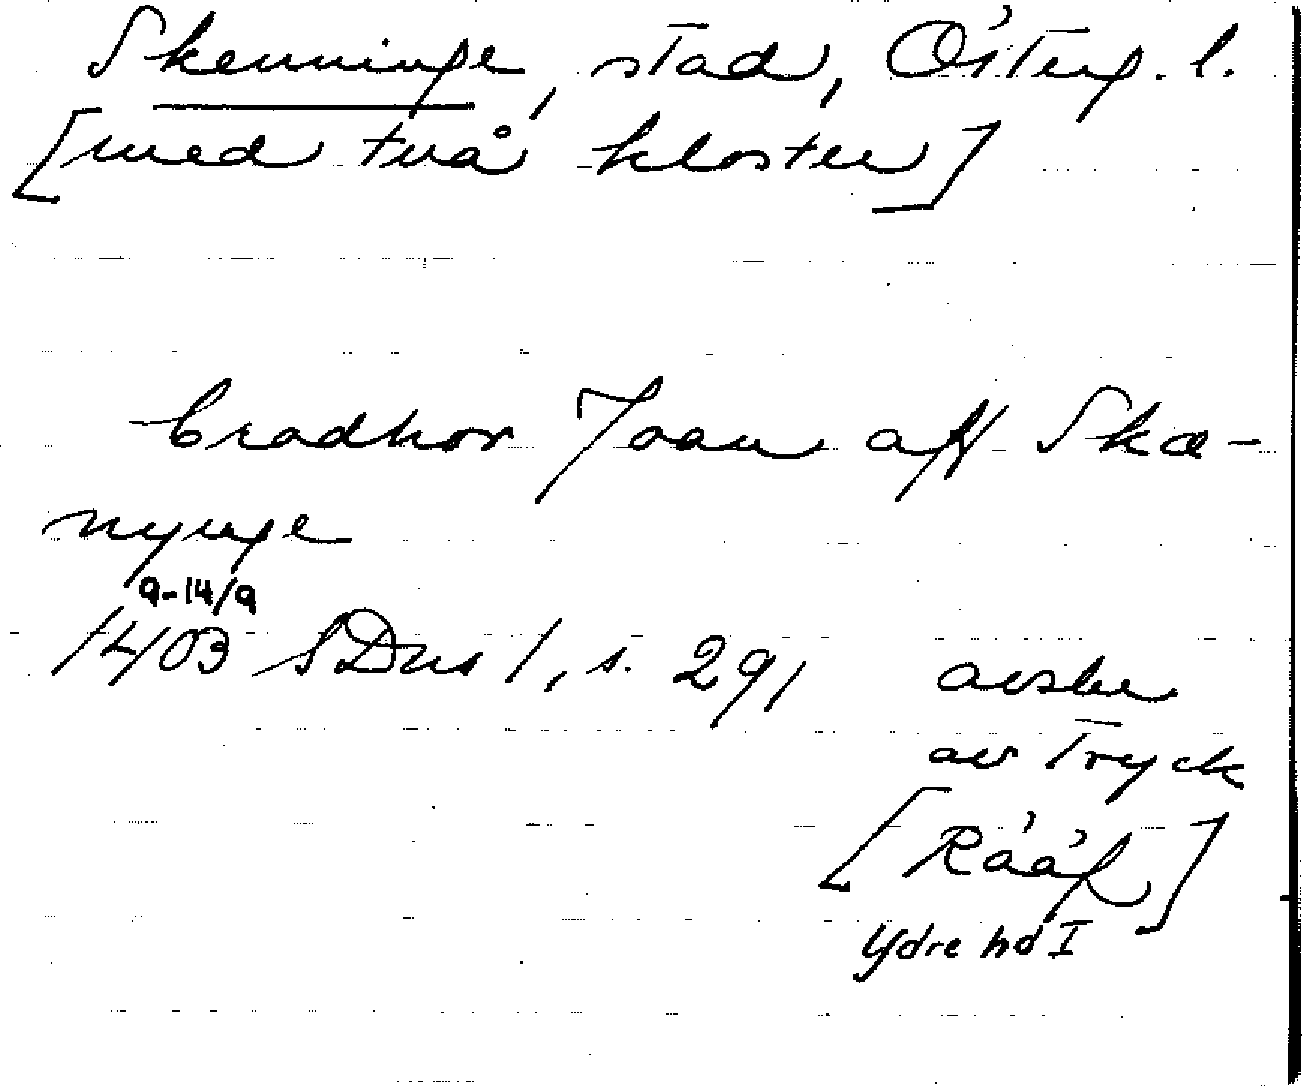 Skenninge, stad, Österg. l.
[med två kloster]
bradhor Joan aff Skæ-
nynge
9-14/9
1403 SDns 1, s. 291 avskr
av tryck
[Rääf]
Ydre hd I